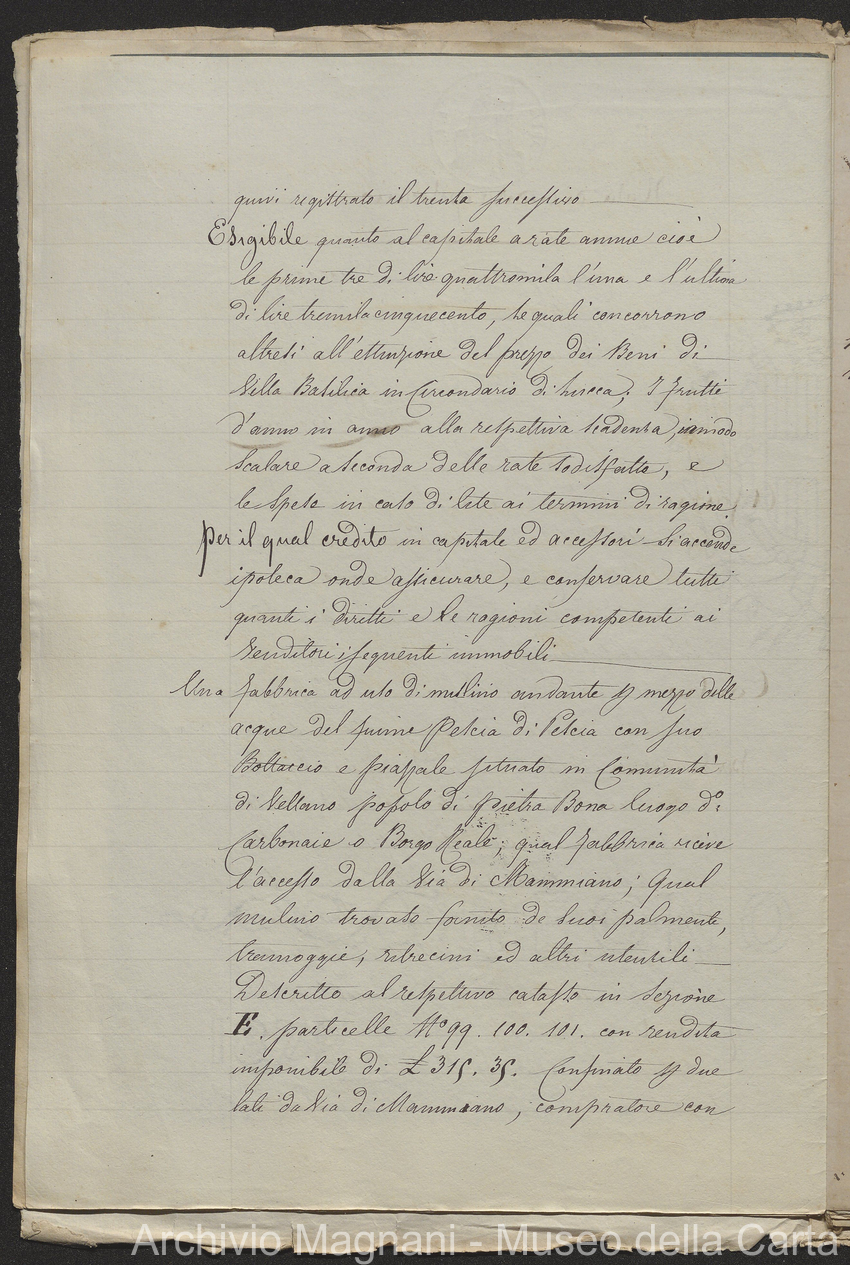 quivi registrato il trenta successivo
Esigibile quanto al capitale a rate annue cioè
le prime tre di lire quattromila l'una e l'ultima
di lire tremilacinquecento, le quali concorrono
altresì all'estinzione del prezzo dei Beni di
Villa Basilica in Circondario di Lucca; I frutti
d'anno in anno alla respettiva scadenza, in modo
scalare a seconda delle rate sodisfatte, e
le spese in caso di lite ai termini di ragione.
Per il qual credito in capitale ed accessori si accende
ipoteca onde assicurare, e conservare tutti
quanti i diritti e le ragioni competenti ai
venditori i seguenti immobili
Una fabbrica ad uso di mulino andante p mezzo delle
acque del fiume Pescia di Pescia con suo
Bottaccio e piazzale situato in Comunità
di Vellano popolo di Pietra Bona luogo do:
Carbonaie o Borgo Reale; qual fabbrica riceve
l'accesso dalla Via di Mammiano; Qual
mulino trovasi fornito de suoi palmenti,
tramoggie, ritrecini ed altri utensili
Descritto al respettivo catasto in sezione
E. particelle No 99. 100. 101. con rendita
imponibile di £ 315. 35. Confinato p due
lati da Via di Mammiano, compratore con
Archivio Magnani - Museo della Carta